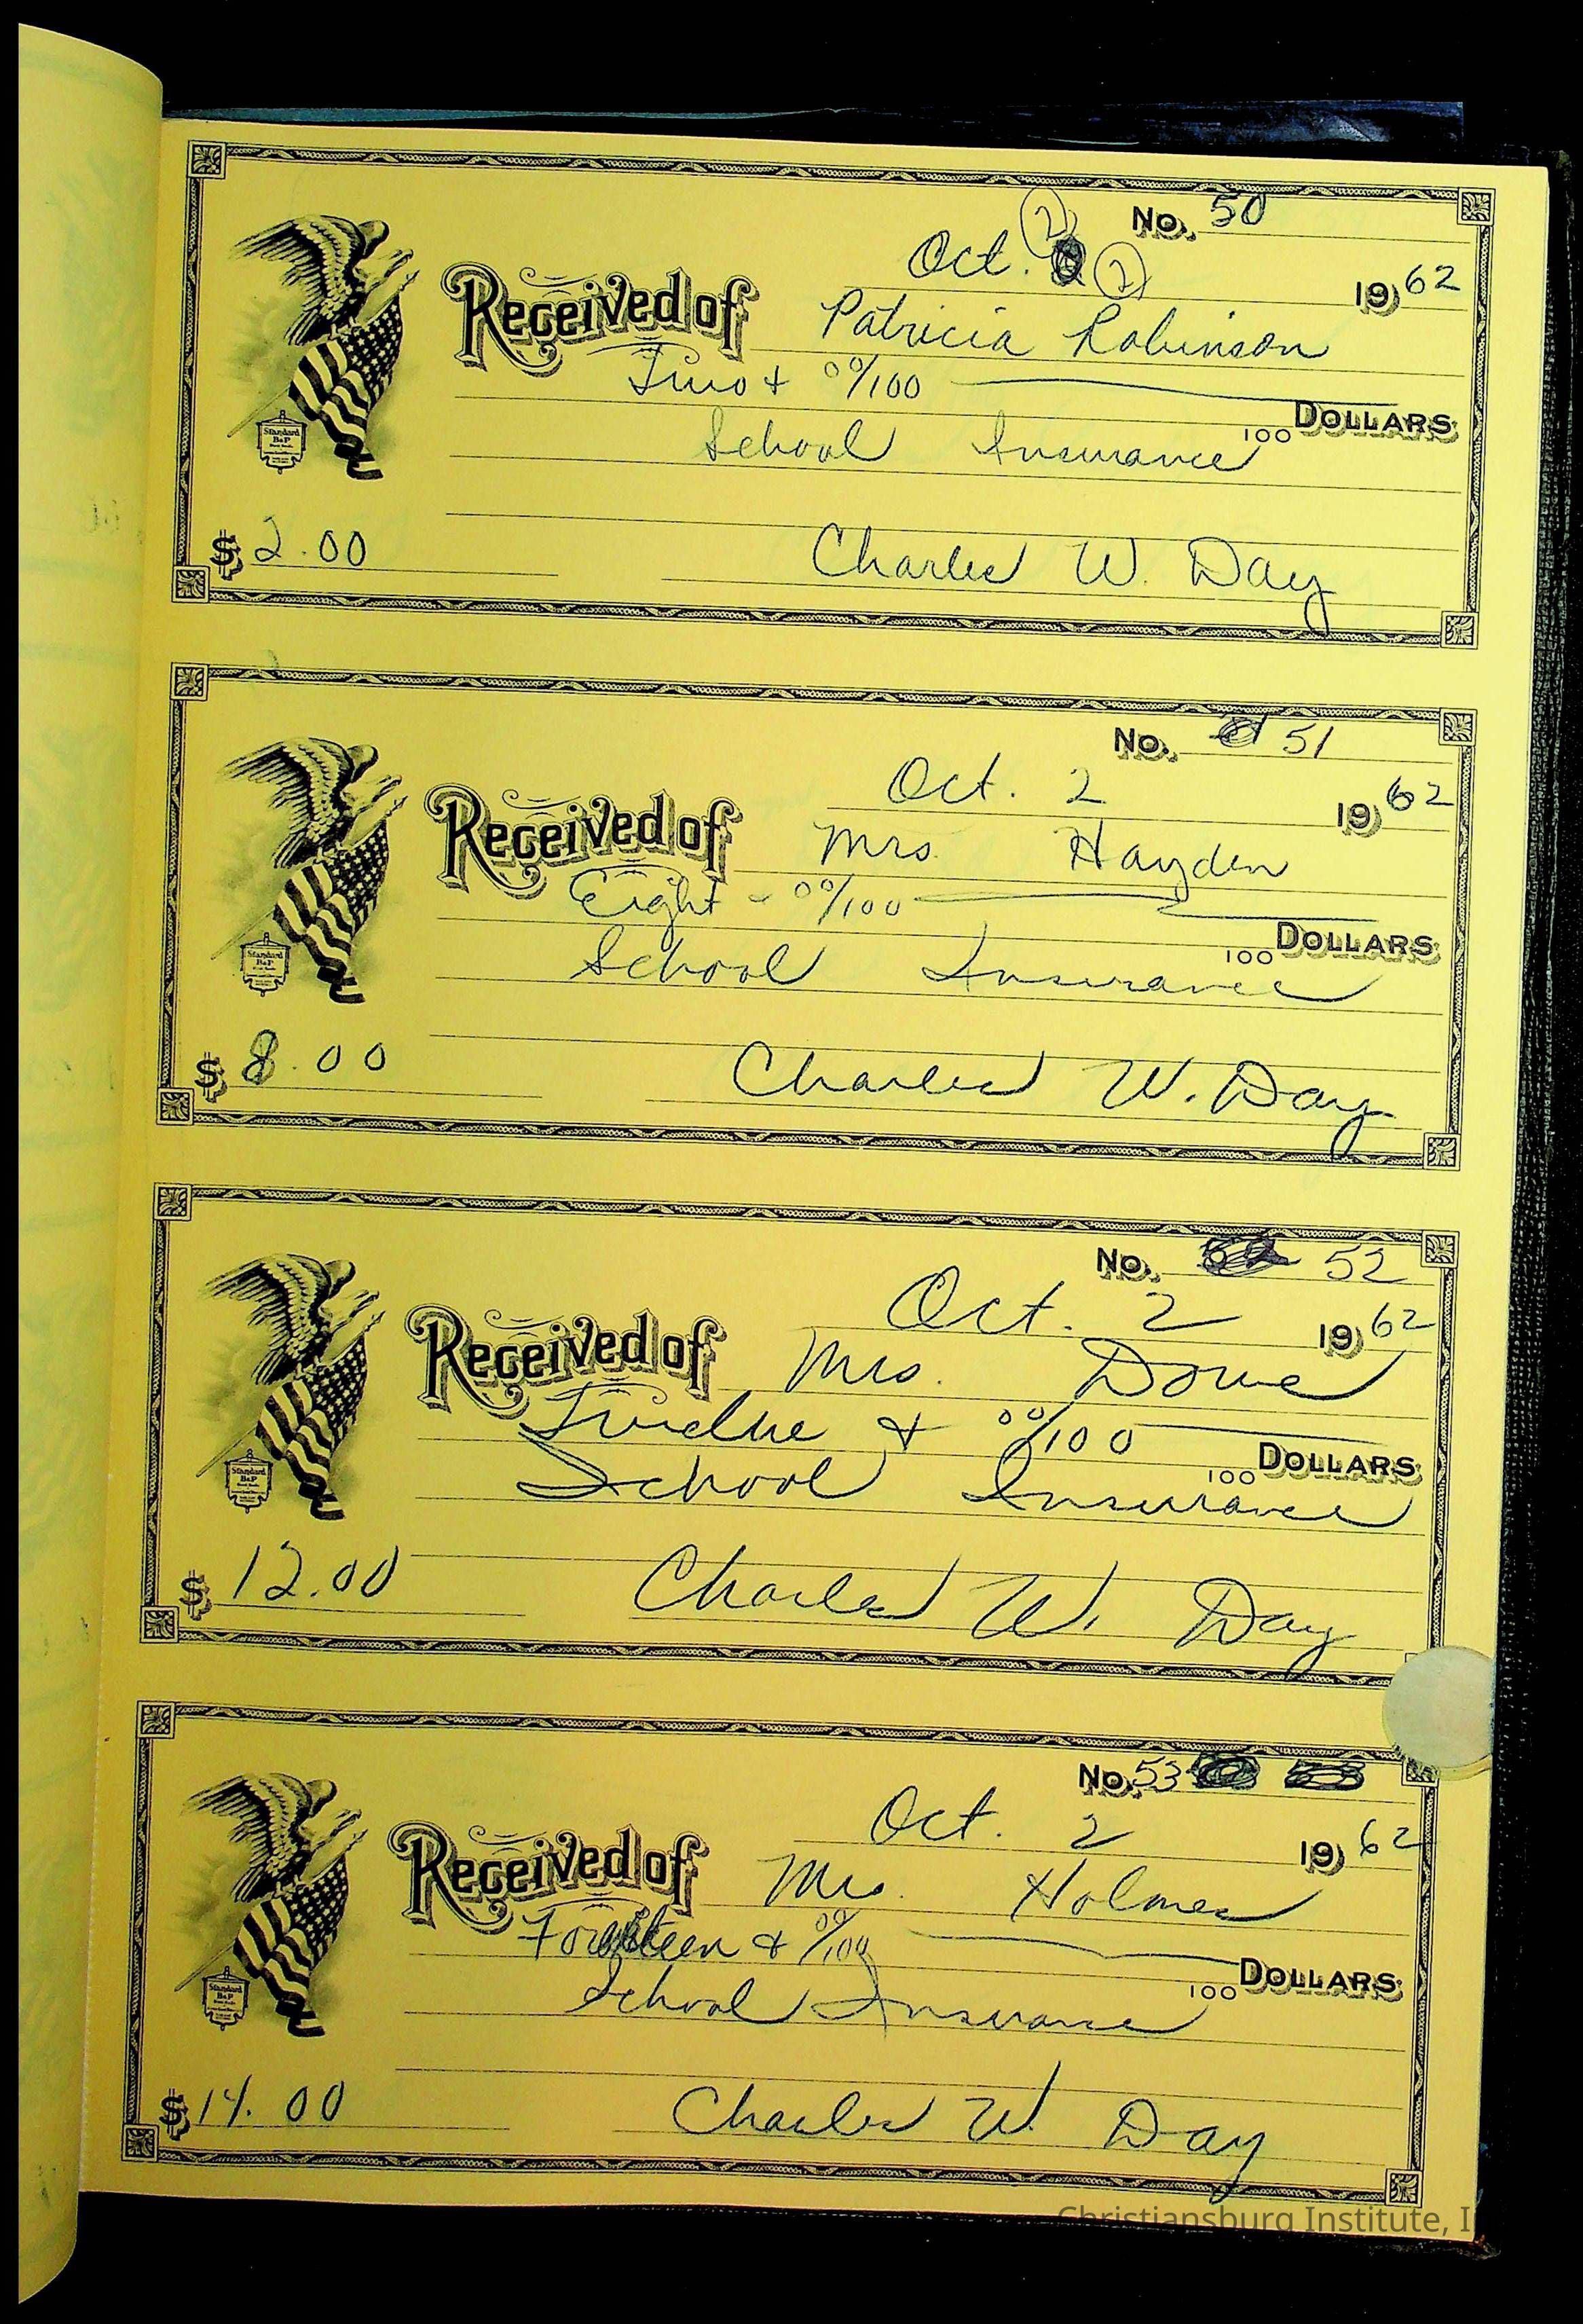 No. 50
Oct. 2 2 1962
Received of Patricia Robinson
Two + 00/100
100 Dollars
School Insurance
$ 2.00 Charles W. Day
Standard B&P
No. 51
Oct. 2 1962
Received of Mrs. Hayden
Eight - 00/100
100 Dollars
School Insurance
$ 8.00 Charles W. Day
Standard B&P
No. 52
Oct. 2 1962
Received of Mrs. Dowe
Twelve + 00/100
100 Dollars
School Insurance
$ 12.00 Charles W. Day
Standard B&P
No. 53
Oct. 2 1962
Received of Mrs. Holmes
Fourteen + 00/100
100 Dollars
School Insurance
$ 14.00 Charles W. Day
Standard B&P
Christiansburg Institute, I